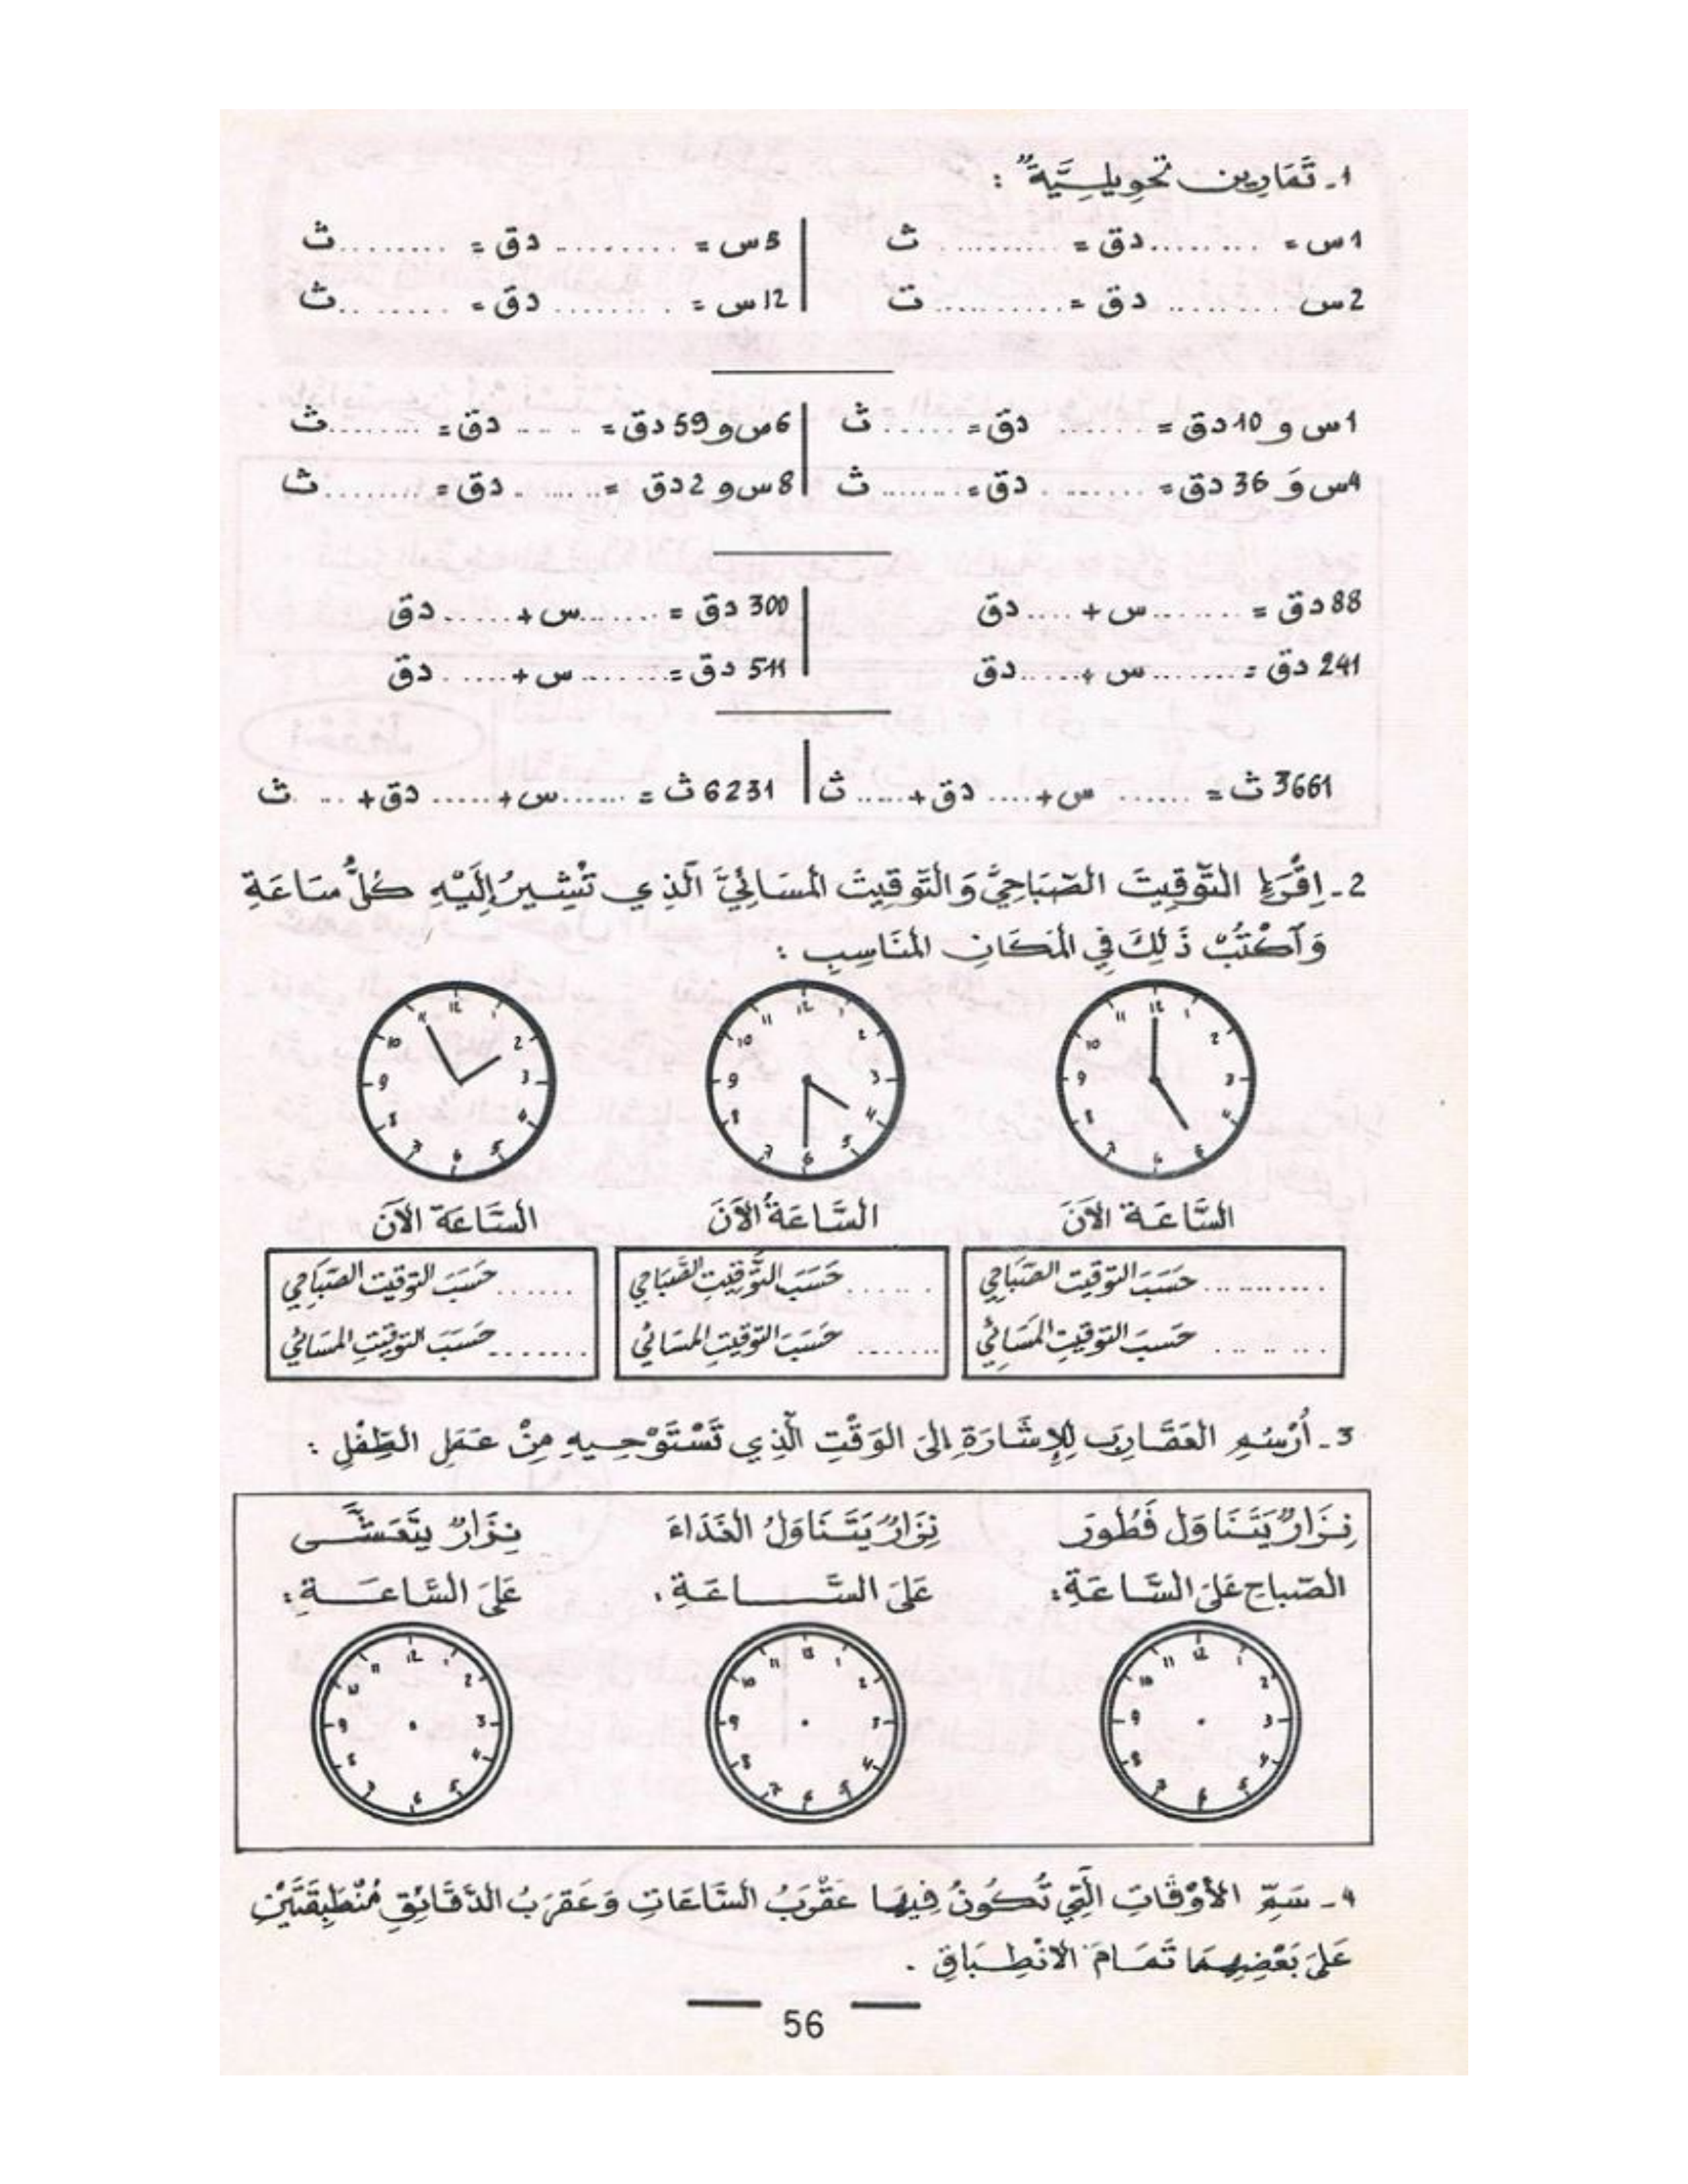 1 - تَمَارِين تحوِيلِيَّةٌ :
1س = ......... دق = .......... ث | 5س = .......... دق = ........ ث
2س ......... دق = .......... ت | 12س = ........ دق = ........ ث
1س و 10دق = ....... دق = ...... ث | 6س و 59دق = ...... دق = ........ ث
4س وَ 36دق = ....... دق = ........ ث | 8س و 2دق = ....... دق = ........ ث
88دق = ........ س + .... دق | 300دق = ....... س + ...... دق
241دق = ....... س + ..... دق | 511دق = ....... س + ...... دق
3661ث = ...... س + .... دق + ..... ث | 6231ث = ...... س + ...... دق + .... ث
2 - اِقْرَءِ التَّوقِيتَ الصّبَاحِيَّ وَالتَّوقِيتَ المسَائِيَّ الَّذِي تُشِيرُ إِلَيْهِ كُلُّ سَاعَةٍ
وَاَكْتُبْ ذَلِكَ فِي المَكَانِ المنَاسِبِ :
12 1 2 3 4 5 6 7 8 9 10 11
12 1 2 3 4 5 6 7 8 9 10 11
12 1 2 3 4 5 6 7 8 9 10 11
السَّاعَة الآنَ
السَّاعَةُ الآنَ
السَّاعَة الآنَ
.......... حَسَبَ التوقيت الصّبَاحِي
........ حَسَبَ التوقيتِ المَسَائِي
....... حَسَبَ التَّوقيتِ الصَّبَاحِي
....... حَسَبَ التوقيتِ المسَائي
...... حَسَبَ التوقيت الصّبَاحِي
....... حَسَبَ التوقيتِ المسَائي
3 - أُرْسُمِ العَقَارِبَ لِلإِشَارَةِ إلىَ الوَقْتِ الّذِي تَسْتَوْحِيهِ مِنْ عَمَلِ الطِّفْلِ :
نِزَارٌ يَتَنَاوَل فَطُورَ
الصّباحِ عَلىَ السَّاعَةِ :
نِزَارٌ يَتَنَاوَلُ الغَذَاءَ
عَلىَ السَّاعَةِ :
نِزَارٌ يتَعَشَّى
عَلىَ السَّاعَةِ :
12 1 2 3 4 5 6 7 8 9 10 11
12 1 2 3 4 5 6 7 8 9 10 11
12 1 2 3 4 5 6 7 8 9 10 11
4 - سَمِّ الأَوْقَاتِ الَّتِي تُكُونُ فِيهَا عَقْرَبُ السَّاعَاتِ وَعَقرَبُ الدَّقَائِقِ مُنْطَبِقَتَيْنِ
عَلىَ بَعْضِهِمَا تَمَامَ الانْطِبَاقِ .
56